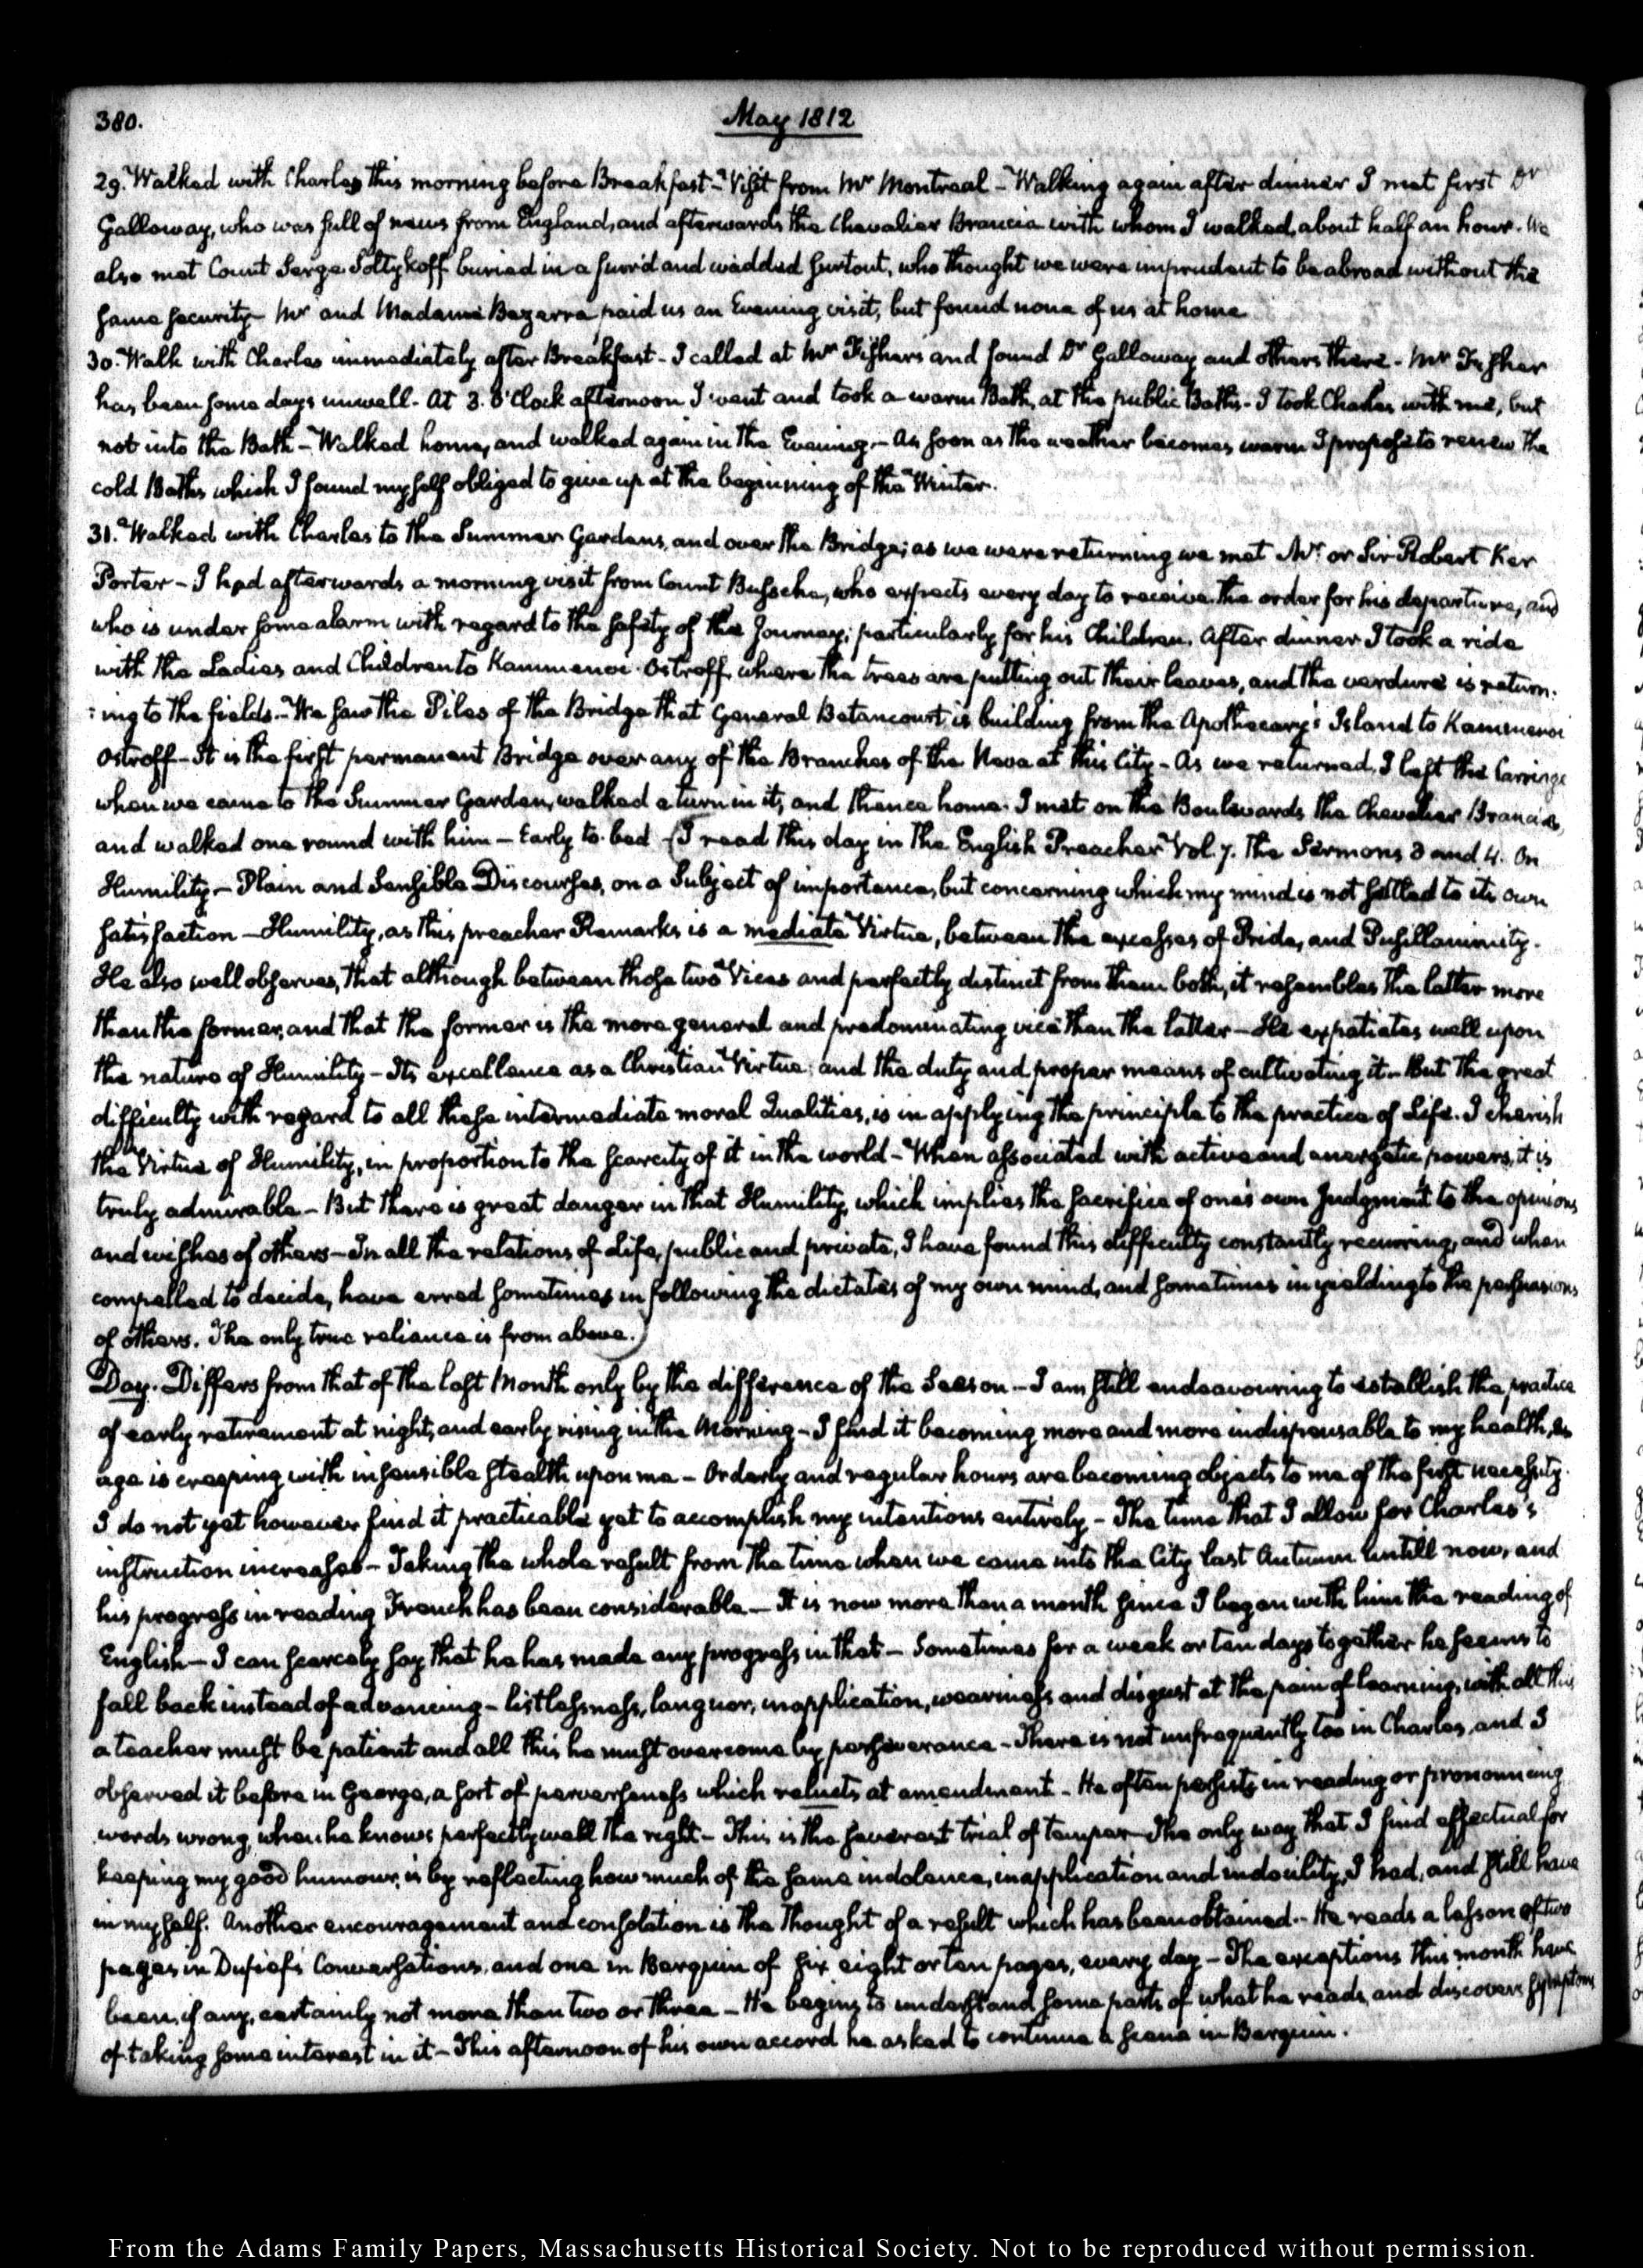 380.
May 1812
29. Walked with Charles this morning before Breakfast - Visit from Mr Montreal - Walking again after dinner I met first Dr
Galloway, who was full of news from England, and afterwards the Chevalier Brancia with whom I walked about half an hour. We
also met Count Serge Soltykoff buried in a furr'd and wadded surtout, who thought we were imprudent to be abroad without the
same security - Mr and Madame Bezerra paid us an Evening visit, but found none of us at home
30. Walk with Charles immediately after Breakfast - I called at Mr Fisher's and found Dr Galloway and others there - Mr Fisher
has been some days unwell - At 3. O'Clock afternoon I went and took a warm Bath, at the public Baths - I took Charles with me, but
not into the Bath - Walked home, and walked again in the Evening. - As soon as the weather becomes warm I propose to renew the
cold Baths which I found myself obliged to give up at the beginning of the Winter.
31. Walked with Charles to the Summer Gardens, and over the Bridge; as we were returning we met Mr. or Sir Robert Ker
Porter - I had afterwards a morning visit from Count Bussche, who expects every day to receive the order for his departure, and
who is under some alarm with regard to the safety of the Journey; particularly for his Children. After dinner I took a ride
with the Ladies and Children to Kammenoi-Ostroff, where the trees are putting out their leaves, and the verdure is return:
:ing to the fields. - We saw the Piles of the Bridge that General Betancourt is building from the Apothecary's Island to Kammenoi
Ostroff - It is the first permanent Bridge over any of the Branches of the Neva at this City - As we returned, I left the Carriage
when we came to the Summer Garden, walked a turn in it, and thence home. I met on the Boulevards the Chevalier Brancia,
and walked one round with him - Early to bed - (I read this day in the English Preacher Vol. 7. The Sermons 3 and 4. On
Humility - Plain and Sensible Discourses, on a Subject of importance, but concerning which my mind is not settled to its own
satisfaction - Humility, as this preacher Remarks is a mediate Virtue, between the excesses of Pride, and Pusillanimity.
He also well observes, that although between those two Vices and perfectly distinct from them both, it resembles the latter more
than the former, and that the former is the more general and predominating vice than the latter - He expatiates well upon
the nature of Humility - Its excellence as a Christian Virtue; and the duty and proper means of cultivating it - But the great
difficulty with regard to all these intermediate moral Qualities, is in applying the principle to the practice of Life. I cherish
the Virtue of Humility, in proportion to the scarcity of it in the world - When associated with active and energetic powers, it is
truly admirable - But there is great danger in that Humility, which implies the sacrifice of one's own Judgment to the opinions
and wishes of others - In all the relations of Life, public and private, I have found this difficulty constantly recurring, and when
compelled to decide, have erred sometimes in following the dictates of my own mind, and sometimes in yielding to the persuasions
of others. The only true reliance is from above.)
Day. Differs from that of the last Month only by the difference of the Season - I am still endeavouring to establish the practice
of early retirement at night, and early rising in the Morning - I find it becoming more and more indispensable to my health, as
age is creeping with insensible stealth upon me - Orderly and regular hours are becoming objects to me of the first necessity.
I do not yet however find it practicable yet to accomplish my intentions entirely - The time that I allow for Charles's
instruction increases - Taking the whole result from the time when we came into the City last Autumn untill now, and
his progress in reading French has been considerable - It is now more than a month since I began with him the reading of
English - I can scarcely say that he has made any progress in that - Sometimes for a week or ten days together he seems to
fall back instead of advancing - listlessness, languor, inapplication, weariness and disgust at the pain of learning, with all this
a teacher must be patient and all this he must overcome by perseverance - There is not unfrequently too in Charles, and I
observed it before in George, a sort of perverseness which relucts at amendment - He often persists in reading or pronouncing
words wrong, when he knows perfectly well the right - This is the severest trial of temper - The only way that I find effectual for
keeping my good humour, is by reflecting how much of the same indolence, inapplication and indocility, I had, and still have
in myself. Another encouragement and consolation is the thought of a result which has been obtained. - He reads a lesson of two
pages in Dufief's Conversations, and one in Berquin of six eight or ten pages, every day - The exceptions this month have
been, if any, certainly not more than two or three - He begins to understand some parts of what he reads, and discovers symptoms
of taking some interest in it - This afternoon of his own accord he asked to continue a scene in Berquin.
From the Adams Family Papers, Massachusetts Historical Society. Not to be reproduced without permission.